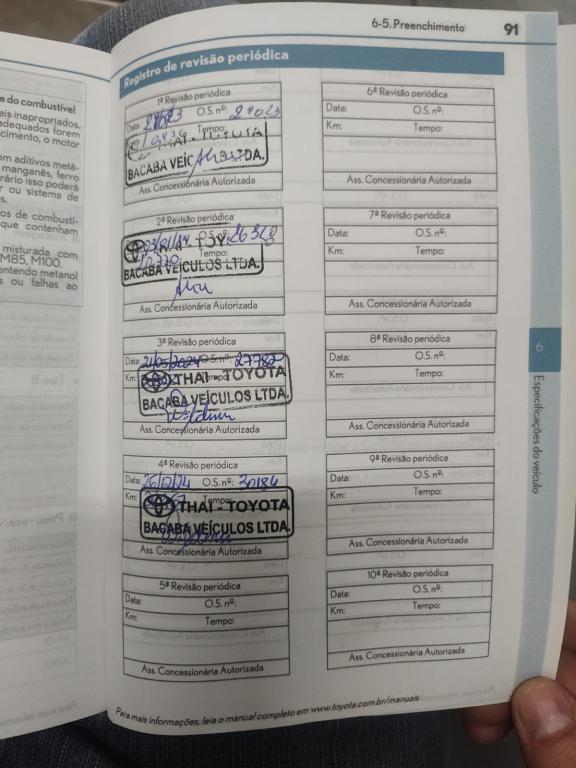 6-5. Preenchimento 91
e do combustível
eis inapropriados.
adequados forem
cimento, o motor
om aditivos metá-
manganês, ferro
rário isso poderá
r ou sistema de
s.
os de combustí-
que contenham
misturada com
M85, M100.
ontendo metanol
s ou falhas ao
Registro de revisão periódica
1ª Revisão periódica
Data: O.S. nº:
Tempo:
BACABA VEÍC LTDA.
Ass. Concessionária Autorizada
2ª Revisão periódica
26340
BACABA VEÍCULOS LTDA.
Ass. Concessionária Autorizada
3ª Revisão periódica
Data: 21/05/2024 O.S. nº: 27782
Km: Tempo:
THAI - TOYOTA
BACABA VEÍCULOS LTDA.
Ass. Concessionária Autorizada
4ª Revisão periódica
Data: O.S. nº: 30184
Km: Tempo:
THAI - TOYOTA
BACABA VEÍCULOS LTDA.
Ass. Concessionária Autorizada
5ª Revisão periódica
Data: O.S. nº:
Km: Tempo:
Ass. Concessionária Autorizada
6ª Revisão periódica
Data: O.S. nº:
Km: Tempo:
Ass. Concessionária Autorizada
7ª Revisão periódica
Data: O.S. nº:
Km: Tempo:
Ass. Concessionária Autorizada
8ª Revisão periódica
Data: O.S. nº:
Km: Tempo:
Ass. Concessionária Autorizada
9ª Revisão periódica
Data: O.S. nº:
Km: Tempo:
Ass. Concessionária Autorizada
10ª Revisão periódica
Data: O.S. nº:
Km: Tempo:
Ass. Concessionária Autorizada
6
Especificações do veículo
Para mais informações, leia o manual completo em www.toyota.com.br/manuais